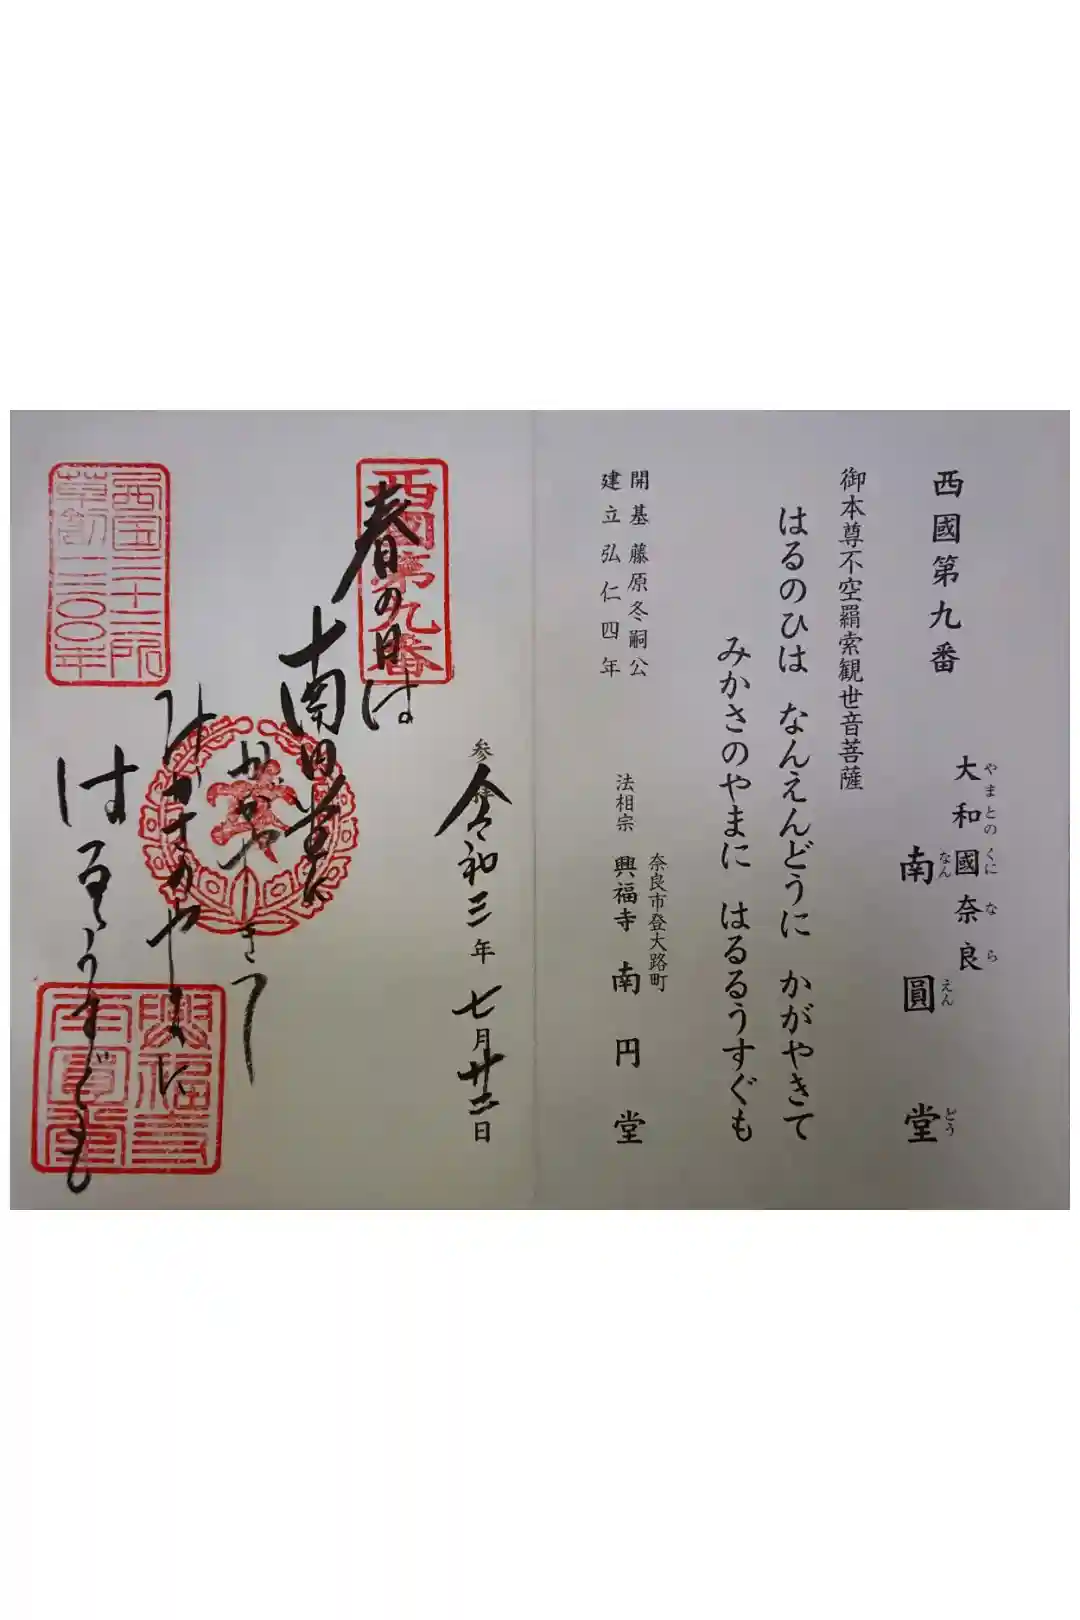 西國第九番
大和國奈良
やまとのくになら
南圓堂
なんえんどう
御本尊不空羂索観世音菩薩
はるのひは なんえんどうに かがやきて
みかさのやまに はるるうすぐも
開基 藤原冬嗣公
建立 弘仁四年
奈良市登大路町
法相宗 興福寺 南円堂
令和三年七月廿二日
西國第九番
春の日は
南円堂に
かがやきて
みかさのやまに
はるるうすぐも
西国三十三所
草創一三〇〇年
興福寺
南円堂